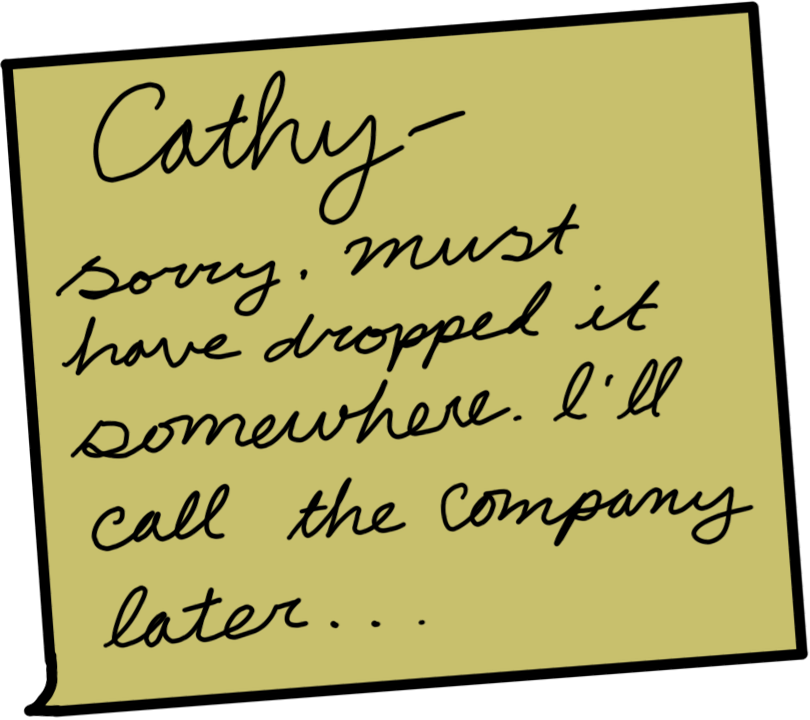 Cathy-
sorry. must
have dropped it
somewhere. I'll
call the company
later...